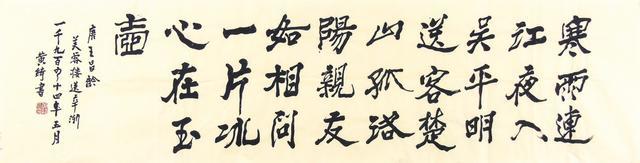 寒雨連
江夜入
吳平明
送客楚
山孤洛
陽親友
如相問
一片冰
心在玉
壺
唐王昌齡
芙蓉樓送辛漸
一千九百八十四年三月
黃綺書